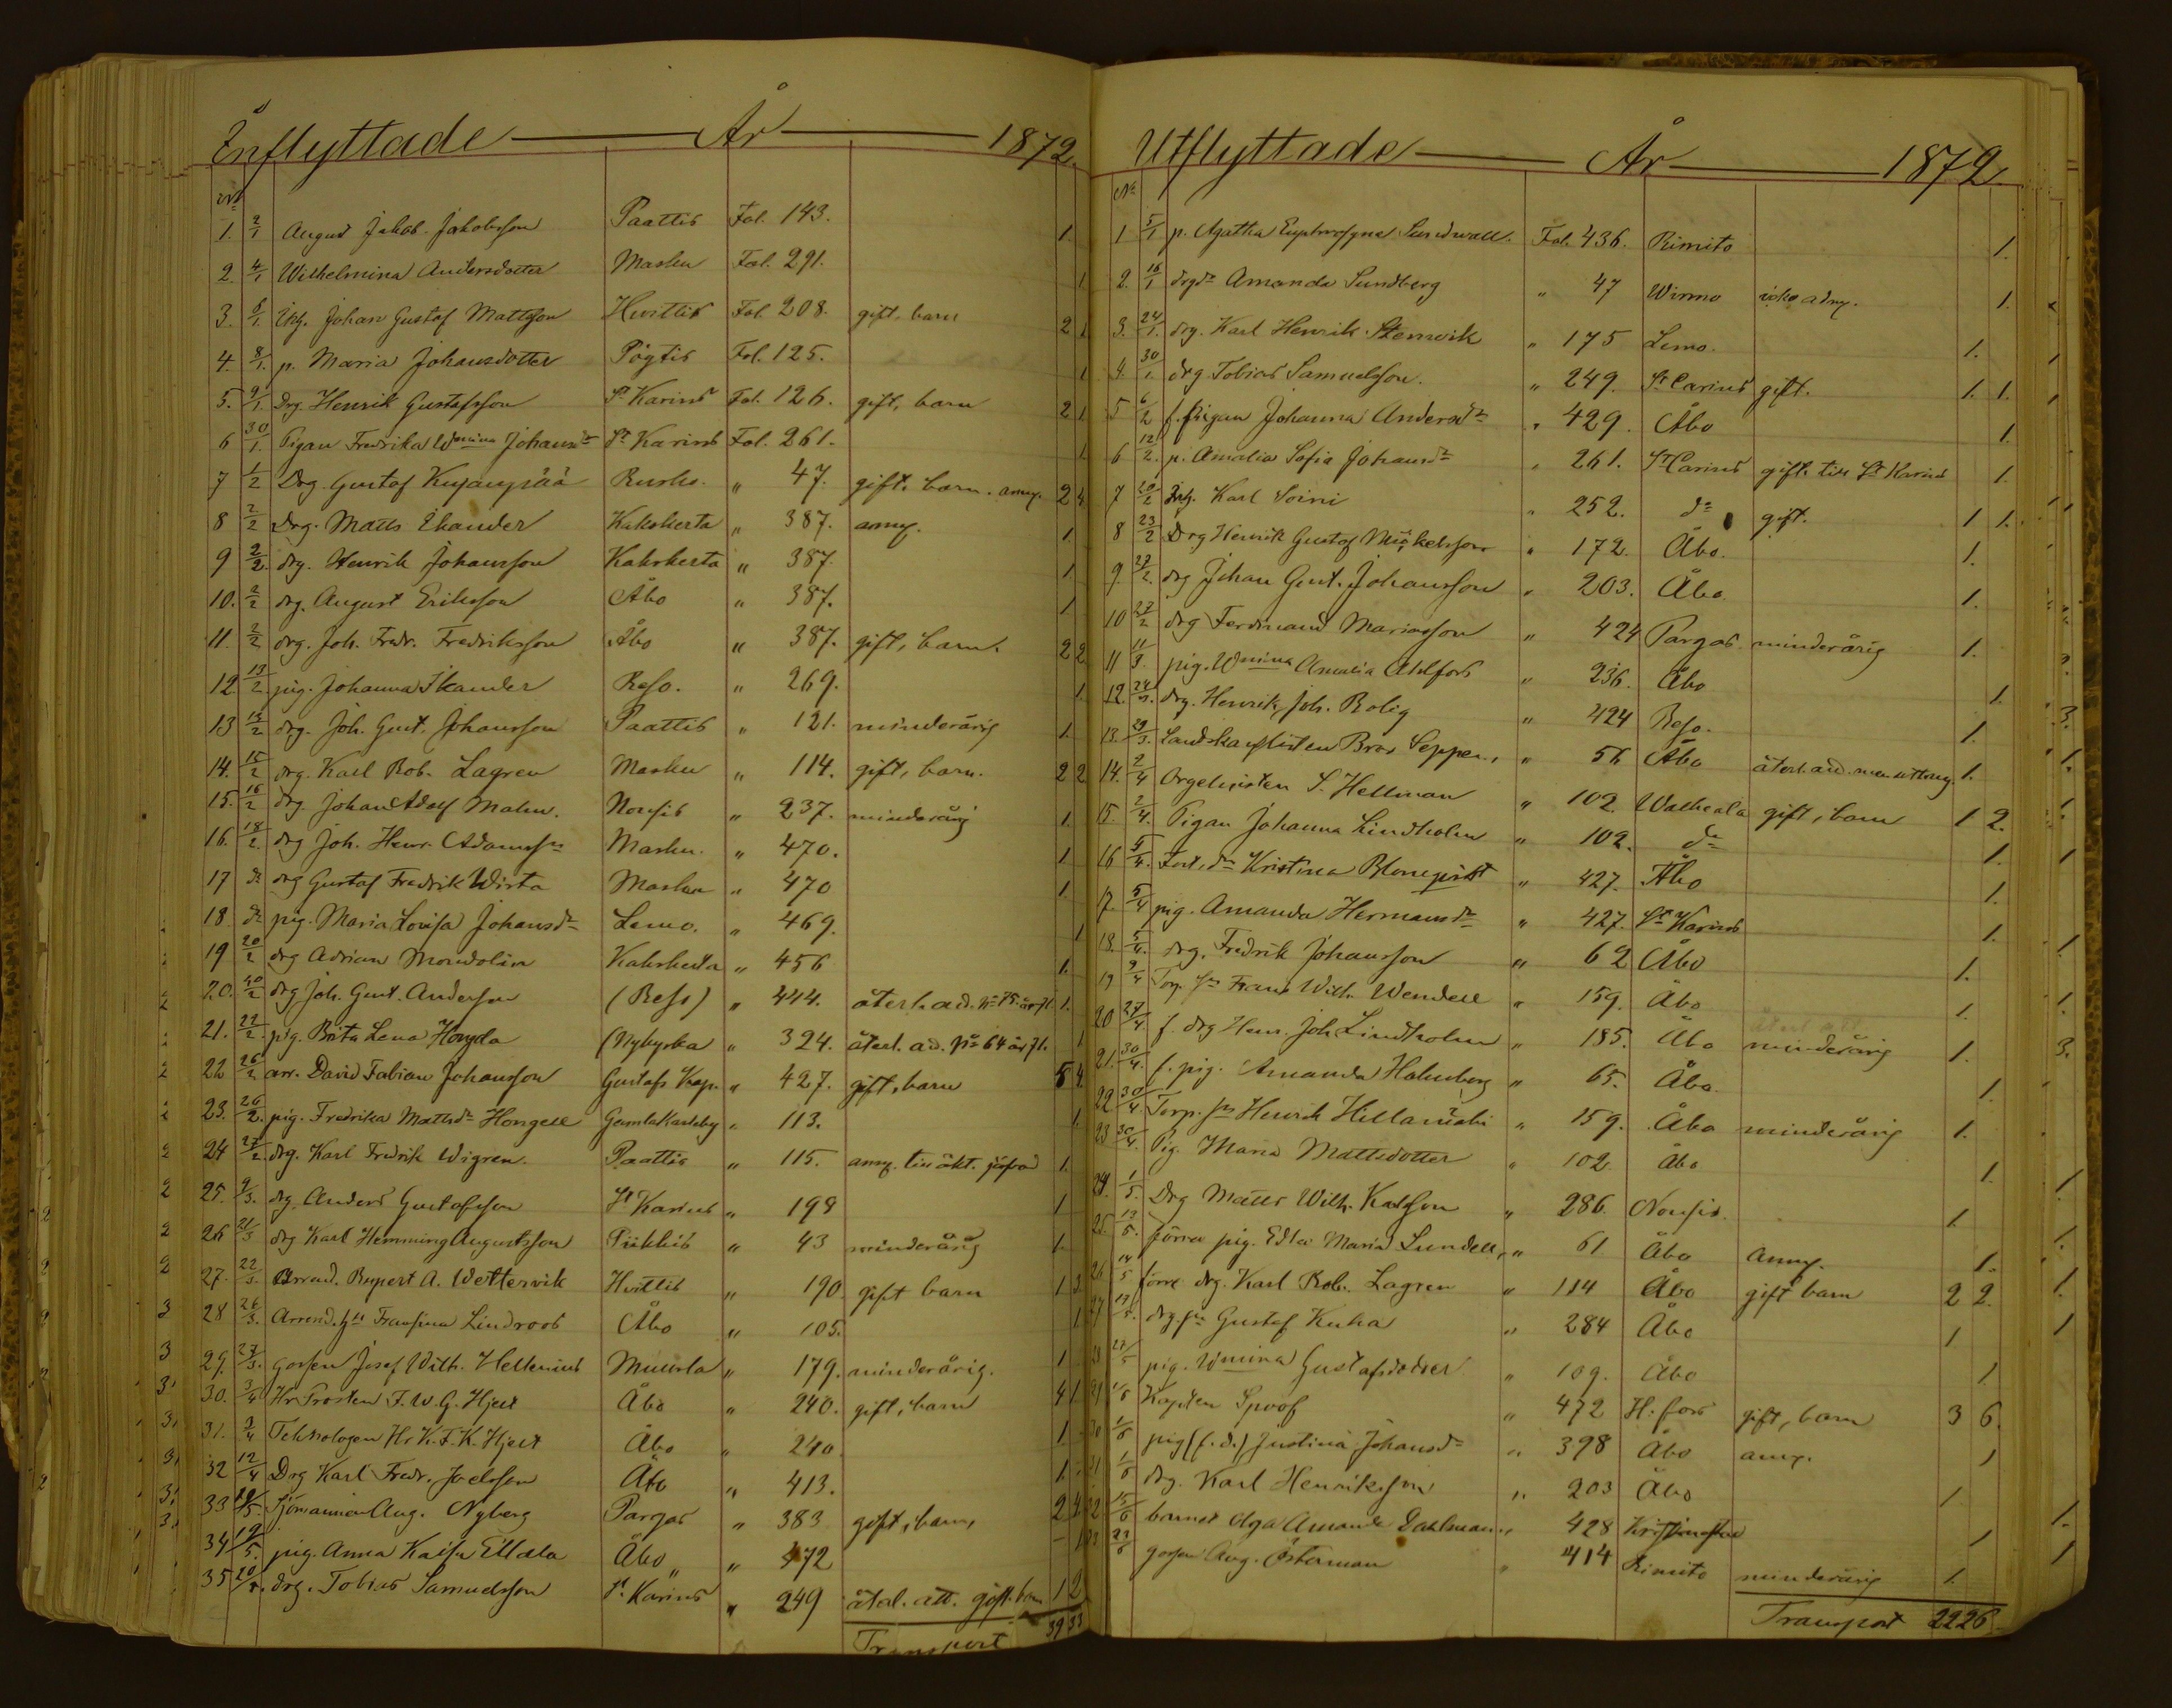 Inflyttade År 1872.
No
1. 2/1 August Jakob Jakobsson Paattis Fol. 143. 1.
2. 4/1 Wilhelmina Andersdotter Masku Fol. 291. 1
3. 8/1. Johan Gustaf Mattsson Hvittis Fol. 208. gift, barn 2 1
4. 8/1. p. Maria Johansdotter Pöytis Fol. 125. 1
5. 9/1. Drg. Henrik Gustafsson St Karins Fol. 126. gift, barn 2 1
6 30/1. Pigan Fredrika Wmina Johansdr St Karins Fol. 261. 1
7 1/2 Drg. Gustaf Kujanpää Rusko. " 47. gift. barn. anny. 2 4
8 2/2 Drg. Matts Ikander Kakskerta " 387. anny. 1
9 2/2. drg. Henrik Johansson Kakskerta " 387. 1
10. 2/2 drg. August Eriksson Åbo " 387. 1
11. 2/2 drg. Joh. Fredr. Fredriksson Åbo " 387. gift, barn. 2 2
12. 13/2 pig. Johanna Ikander Reso. " 269. 1.
13 15/2 drg. Joh. Gust. Johansson Paattis " 121. minderårig 1.
14. 15/2 drg. Karl Rob. Lagren Masku " 114. gift, barn. 2 2
15. 16/2 drg. Johan Adolf Malm. Nousis " 237. minderårig 1.
16. 18/2. drg Joh. Henr. Adamsson Masku. " 470. 1
17 do drg Gustaf Fredrik Wirta Masku " 470 1.
18. do pig. Maria Lovisa Johansdr Lemo. " 469. 1
19 20/2 drg Adrian Mondolin Kakskerta " 456 1.
20. 20/2 drg Joh. Gust. Anderson (Reso) " 444. återl. ad. No 75 år 71. 1.
21. 22/2. pig. Brita Lena (Nykyrka " 324. återl. ad. No 64 år 71. 1
22 26/2 arr. David Fabian Johansson Gustafs Kap. " 427. gift, barn 5 4
23. 26/2. pig. Fredrika Mattsdr Hongell Gamlakarleby " 113. 1.
24 27/2. drg. Karl Fredrik Wigren. Paattis " 115. anny. till äkt. 1.
25. 9/3. drg. Anders Gustafsson St Karins " 198 1
26 21/3 drg Karl Hemming Augustsson Piikkis " 43 minderårig 1.
27. 22/3. Arrend. Rupert A. Wettervik Hvittis " 190 gift barn 1 3
28 26/3. Arrend. Fransina Lindroos Åbo " 105. 1
29. 27/3. gossen Josef Wilh. Hellenius Muurla " 179. minderårig. 1
30. 3/4 Hr Prosten F. W. G. Hjelt Åbo " 240. gift, barn 4 1
31. 3/4 Teknologen Hr K. F. K. Hjelt Åbo " 240. 1
32 12/4 Drg Karl Fredr. Joelsson Åbo " 413. 1.
33 /5. Sjömannen Aug. Nyberg Pargas " 383 gift, barn, 2 4
34 19/5. pig. Anna Kaisa Ellala Åbo " 472 – 1
35 20/5. drg. Tobias Samuelsson St. Karins " 249 gift. barn 1 2
Transport 39 33
Utflyttade År 1872.
No
1 5/1 p. Agatha Euphrosyne Sundwall. Fol. 436. Rimito 1.
2. 16/1 drgdr Amanda Sundberg " 47 Wirmo icke adny. 1.
3. 24/1. drg. Karl Henrik Stenvik " 175 Lemo. 1.
4. 30/1. drg Tobias Samuelsson. " 249. St Carins gift. 1. 1.
5 6/2 f. Pigan Johanna Andersdr " 429. Åbo 1.
6 12/2. p. Amalia Sofia Johansdr " 261. St Carins gift. till St Karins 1.
7 20/2 Karl Soini " 252. do gift. 1 1.
8 23/2 Drg Henrik Gustaf Mickelsson " 172. Åbo. 1.
9. 27/2. drg Johan Gust. Johansson " 203. Åbo. 1.
10 27/2 drg Ferdinand Mariasson " 424 Pargas minderårig 1.
11 11/3. pig. Wmina Amalia Ahlfors " 236. Åbo 1.
12. 24/3. drg. Henrik Joh. Rolig " 424 Reso. 1.
13. 29/3. Landskanslisten Bror Seppen, " 56 Åbo 1.
14. 2/4 Orgelnisten S. Hellman " 102. Walkeala gift, barn 1 2.
15. 2/4. Pigan Johanna Lindholm " 102. do 1.
16 5/4. Kristina Blomqvist " 427. Åbo 1.
17. 5/4 pig. Amanda Hermansdr " 427. St Karins 1.
18. 5/4. drg. Fredrik Johansson " 62 Åbo 1.
19 9/4 Torp. sn Frans Wilh. Wendell " 159. Åbo 1.
20 27/4. f. drg Henr. Joh Lindholm " 185. Åbo minderårig 1.
21. 30/4. f. pig. Amanda Holmberg " 65. Åbo. 1.
22 30/4 Torp. sn Henrik " 159. Åbo minderårig 1.
23 30/4. Pig. Maria Mattsdotter " 102 Åbo 1.
24. 1/5. Drg Matts Wilh. Karlsson " 286. Nousis. 1.
25. 13/5. förra pig. Edla Maria Lundell, " 61 Åbo anny. 1.
26 14/5 förre drg. Karl Rob. Lagren " 114 Åbo gift barn 2 2.
27 17/5. drg. sn Gustaf Kuha " 284 Åbo 1
28 21/5 pig. Wmina Gustafsdotter " 109. Åbo 1
29 1/6 Kapten Spoof " 472 H: fors gift, barn 3 6.
30 1/6 pig (f. d.) Justina Johansdr " 398 Åbo anny. 1
31 1/6 drg. Karl Henriksson " 203 Åbo 1.
32 15/6 barnet Olga Amanda Dahlman " 428 Kristinestad 1
33 22/6 gossen Aug. Österman " 414 Rimito minderårig 1.
Transport 22 26